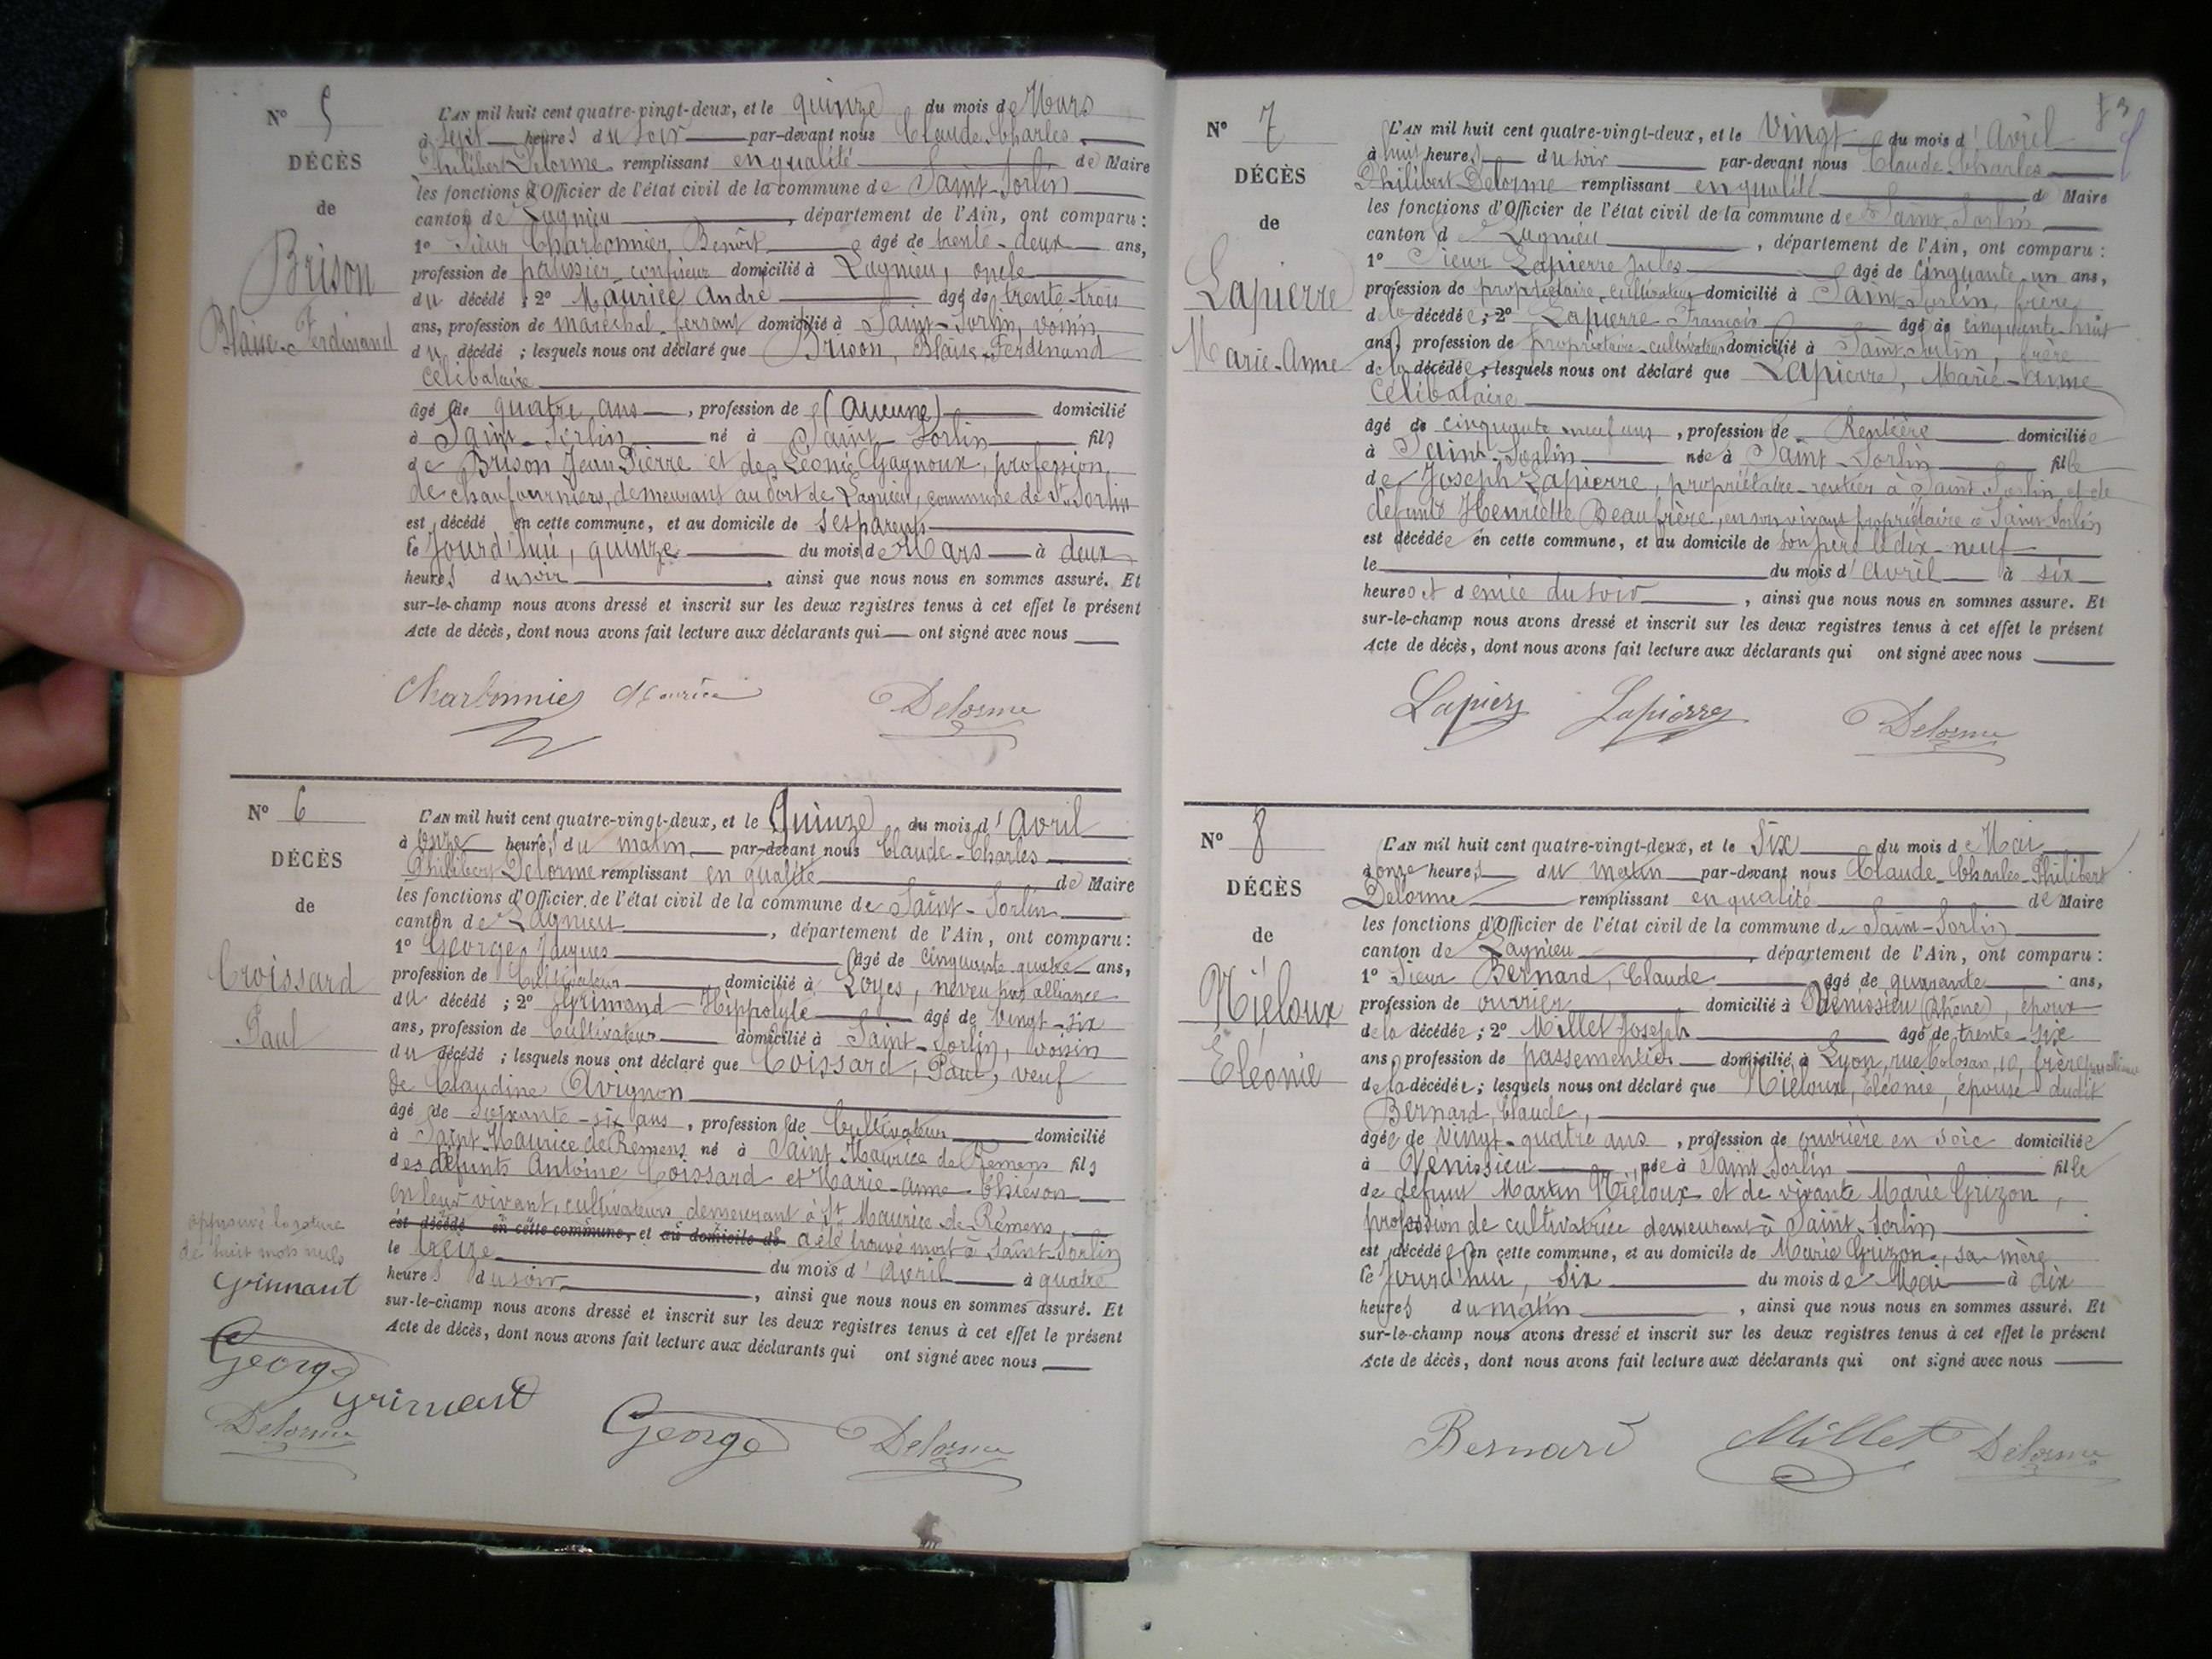 N° 5
DÉCÈS
de
Brison
Blaise-Ferdinand
L'AN mil huit cent quatre-vingt-deux, et le quinze du mois de Mars
à sept heures du soir par-devant nous Claude-Charles
Philibert Delorme remplissant en qualité de Maire
les fonctions d'Officier de l'état civil de la commune de Saint-Sorlin
canton de Lagnieu, département de l'Ain, ont comparu :
1° Sieur Charbonnier Benoît âgé de trente-deux ans,
profession de patissier confiseur domicilié à Lagnieu, oncle
du décédé ; 2° Maurice André âgé de trente-trois
ans, profession de maréchal-ferrant domicilié à Saint-Sorlin, voisin
du décédé ; lesquels nous ont déclaré que Brison, Blaise-Ferdinand
célibataire
âgé de quatre ans, profession de (aucune) domicilié
à Saint-Sorlin né à Saint-Sorlin fils
de Brison Jean Pierre et de Léonie Gagnoux, profession
de chaufourniers, demeurant au Port de Lagnieu, commune de St Sorlin
est décédé en cette commune, et au domicile de ses parents
le Jourd'hui, quinze du mois de Mars à deux
heures du soir, ainsi que nous nous en sommes assuré. Et
sur-le-champ nous avons dressé et inscrit sur les deux registres tenus à cet effet le présent
Acte de décès, dont nous avons fait lecture aux déclarants qui ont signé avec nous
Charbonnier Maurice Delorme
N° 6
DÉCÈS
de
Croissard
Paul
L'AN mil huit cent quatre-vingt-deux, et le Quinze du mois d'Avril
à onze heures du matin par-devant nous Claude-Charles
Philibert Delorme remplissant en qualité de Maire
les fonctions d'Officier de l'état civil de la commune de Saint-Sorlin
canton de Lagnieu, département de l'Ain, ont comparu :
1° George Jacques âgé de cinquante quatre ans,
profession de Cultivateur domicilié à Loyes, neveu par alliance
du décédé ; 2° Grimand Hippolyte âgé de vingt-six
ans, profession de Cultivateur domicilié à Saint-Sorlin, voisin
du décédé ; lesquels nous ont déclaré que Coissard, Paul, veuf
de Claudine Avignon
âgé de soixante-six ans, profession de Cultivateur domicilié
à Saint-Maurice de Rémens né à Saint Maurice de Rémens fils
des défunts Antoine Coissard et Marie-Anne Chiévon
en leur vivant, cultivateurs demeurant à St Maurice de Rémens,
est décédé en cette commune, et au domicile de a été trouvé mort à Saint-Sorlin
le treize du mois d'Avril à quatre
heures du soir, ainsi que nous nous en sommes assuré. Et
sur-le-champ nous avons dressé et inscrit sur les deux registres tenus à cet effet le présent
Acte de décès, dont nous avons fait lecture aux déclarants qui ont signé avec nous
approuvé la rature
de huit mots nuls
Grimaut
George
Grimaut
Delorme
George Delorme
53
N° 7
DÉCÈS
de
Lapierre
Marie-Anne
L'AN mil huit cent quatre-vingt-deux, et le Vingt du mois d'Avril
à huit heures du soir par-devant nous Claude-Charles
Philibert Delorme remplissant en qualité de Maire
les fonctions d'Officier de l'état civil de la commune de Saint-Sorlin
canton de Lagnieu, département de l'Ain, ont comparu :
1° Sieur Lapierre Jules âgé de cinquante-un ans,
profession de propriétaire-cultivateur domicilié à Saint-Sorlin, frère
de la décédée ; 2° Lapierre François âgé de cinquante-huit
ans, profession de propriétaire-cultivateur domicilié à Saint-Sorlin, frère
de la décédée ; lesquels nous ont déclaré que Lapierre, Marie-Anne
Célibataire
âgé de cinquante neuf ans, profession de Rentière domiciliée
à Saint-Sorlin née à Saint-Sorlin fille
de Joseph Lapierre, propriétaire-rentier à Saint-Sorlin et de
défunte Henriette Beaufrère, en son vivant propriétaire à Saint Sorlin
est décédée en cette commune, et au domicile de son père le dix-neuf
le du mois d'Avril à six
heures et demie du soir, ainsi que nous nous en sommes assuré. Et
sur-le-champ nous avons dressé et inscrit sur les deux registres tenus à cet effet le présent
Acte de décès, dont nous avons fait lecture aux déclarants qui ont signé avec nous
Lapierre Lapierre Delorme
N° 8
DÉCÈS
de
Niéloux
Eléonie
L'AN mil huit cent quatre-vingt-deux, et le Six du mois de Mai
à onze heures du matin par-devant nous Claude-Charles-Philibert
Delorme remplissant en qualité de Maire
les fonctions d'Officier de l'état civil de la commune de Saint-Sorlin
canton de Lagnieu, département de l'Ain, ont comparu :
1° Sieur Bernard, Claude âgé de quarante ans,
profession de ouvrier domicilié à Vénissieu (Rhône), époux
de la décédée ; 2° Millet Joseph âgé de trente-six
ans, profession de passementier domicilié à Lyon, rue 10, frère par alliance
de la décédée ; lesquels nous ont déclaré que Niéloux, Eléonie, épouse dudit
Bernard, Claude,
âgée de vingt-quatre ans, profession de ouvrière en soie domiciliée
à Vénissieu, née à Saint Sorlin fille
de défunt Martin Niéloux et de vivante Marie Grizon,
profession de cultivatrice demeurant à Saint-Sorlin
est décédée en cette commune, et au domicile de Marie Grizon, sa mère
le Jourd'hui, six du mois de Mai à dix
heures du matin, ainsi que nous nous en sommes assuré. Et
sur-le-champ nous avons dressé et inscrit sur les deux registres tenus à cet effet le présent
Acte de décès, dont nous avons fait lecture aux déclarants qui ont signé avec nous
Bernard Millet Delorme